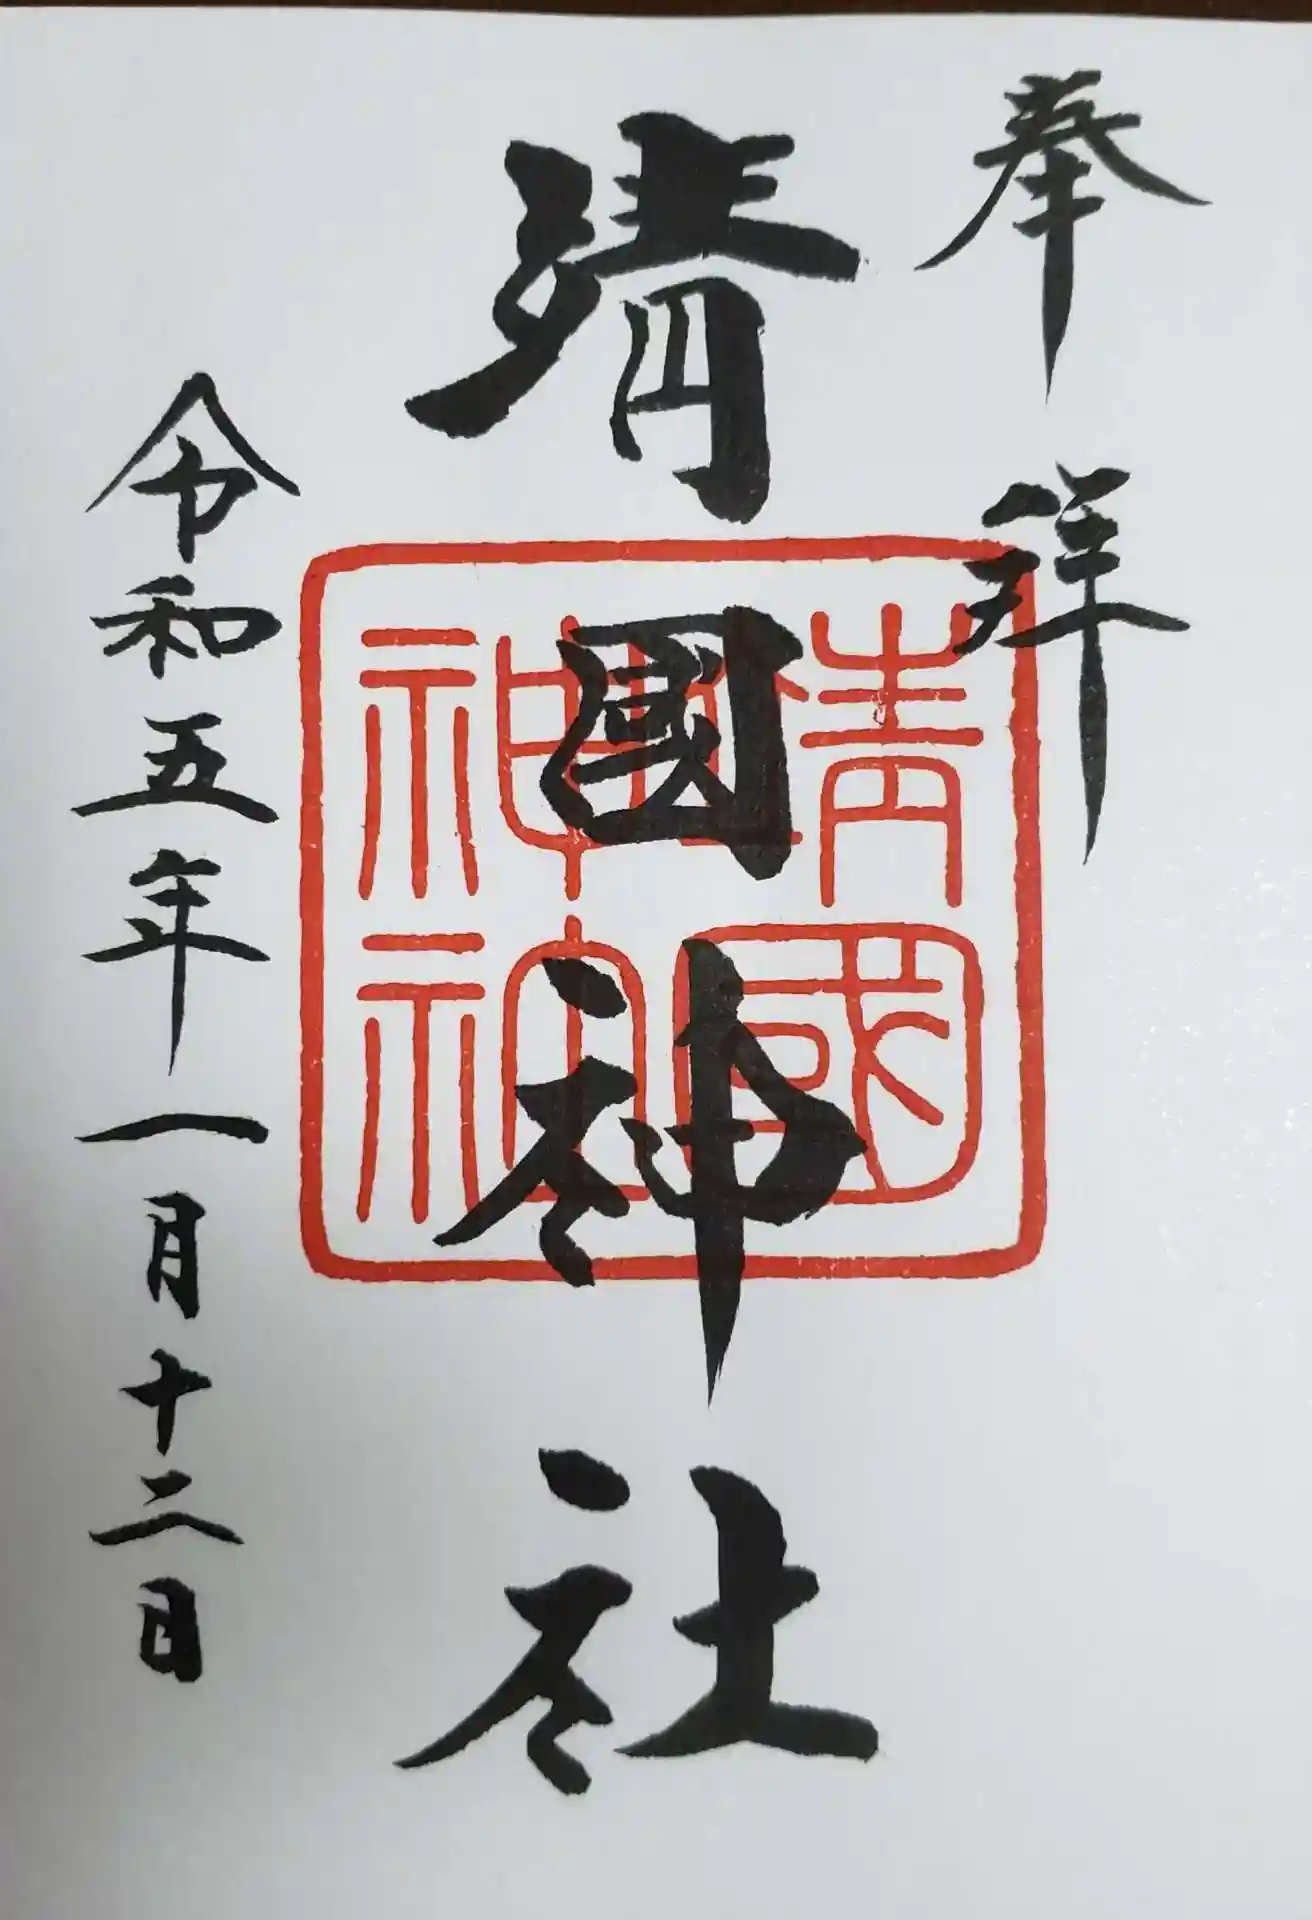 奉拝
靖國神社
令和五年一月十二日
靖國
神社